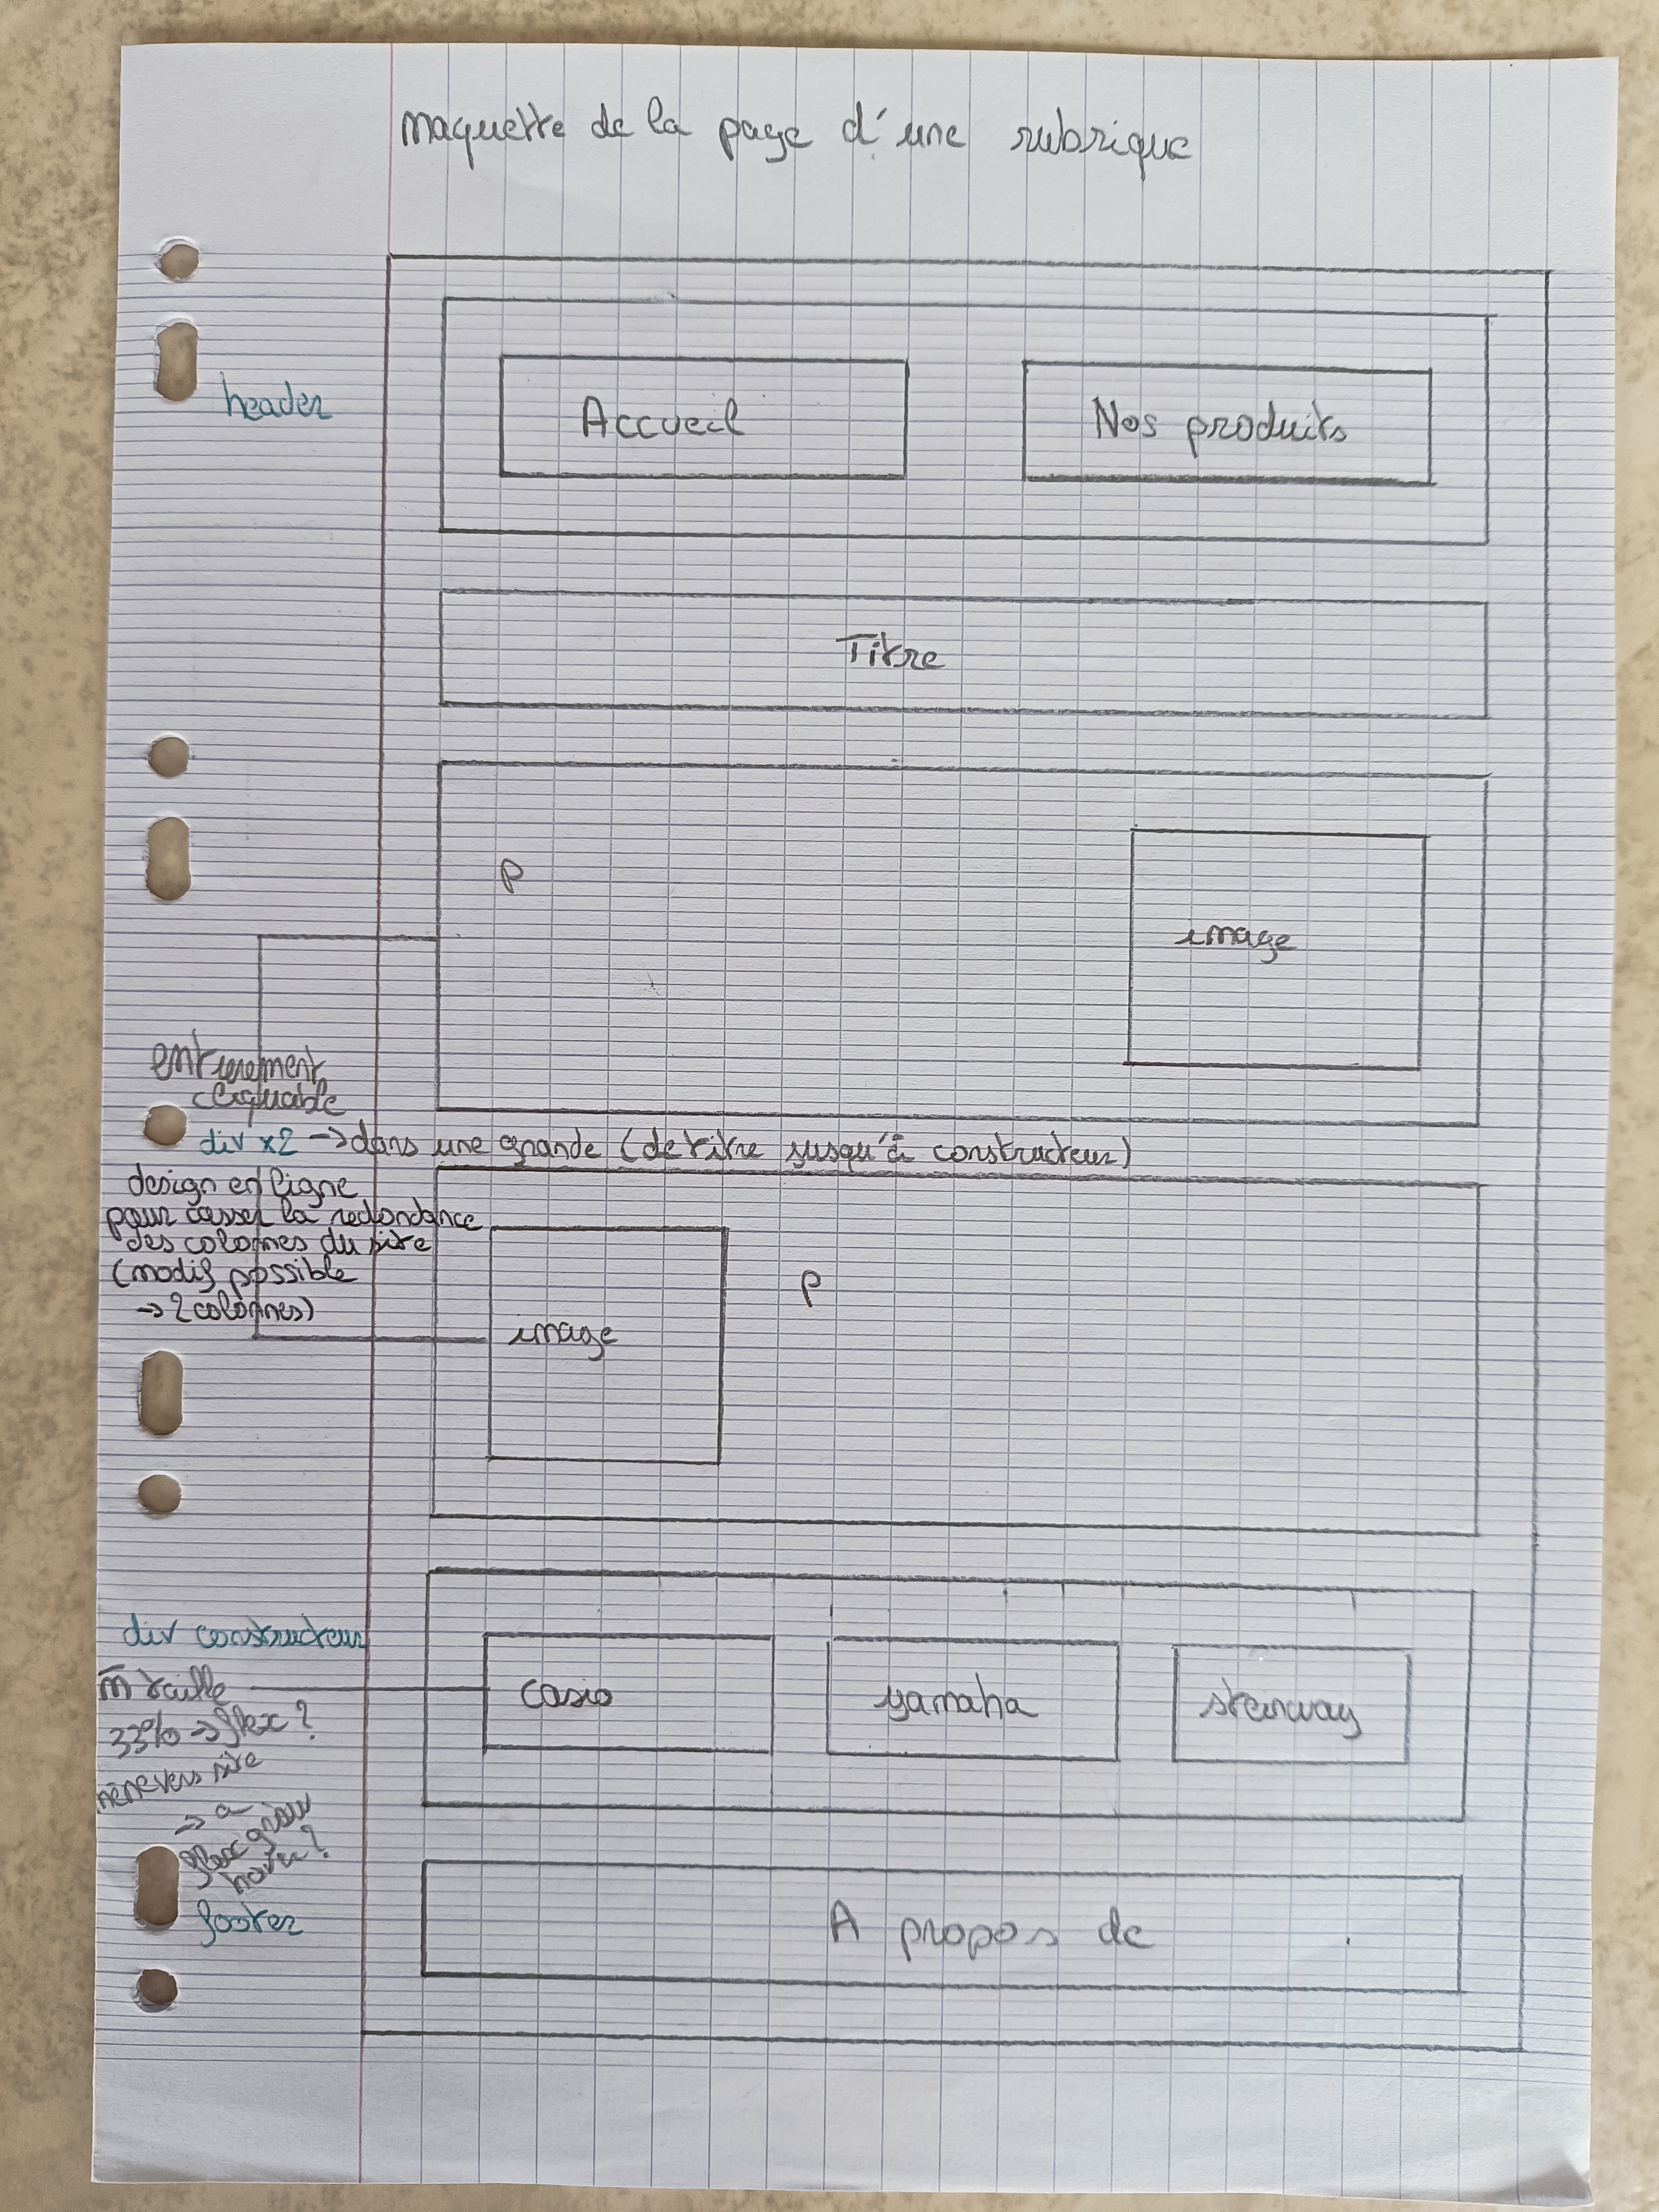 maquette de la page d'une rubrique
header
Accueil
Nos produits
Titre
p
image
entierement
cliquable
div x2 -> dans une grande (de titre jusqu'à constructeur)
design en ligne
pour casser la redondance
des colonnes du site
(modif possible
-> 2 colonnes)
image
p
div constructeur
m̄ taille
33% -> flex ?
mène vers site
-> a
flex grow
hover ?
casio
yamaha
steinway
footer
A propos de